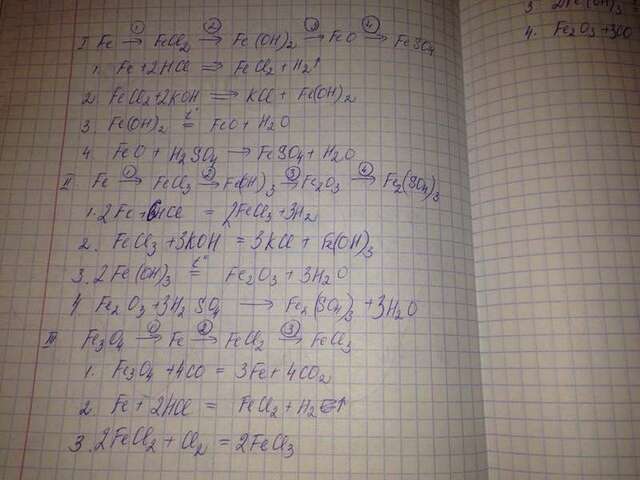 I Fe →① FeCl2 →② Fe(OH)2 →③ FeO →④ FeSO4
1. Fe + 2HCl ⇒ FeCl2 + H2↑
2. FeCl2 + 2KOH ⇒ KCl + Fe(OH)2
3. Fe(OH)2 =t° FeO + H2O
4. FeO + H2SO4 → FeSO4 + H2O
II Fe →① FeCl3 →② Fe(OH)3 →③ Fe2O3 →④ Fe2(SO4)3
1. 2Fe + 6HCl = 2FeCl3 + 3H2
2. FeCl3 + 3KOH = 3KCl + Fe(OH)3
3. 2Fe(OH)3 =t° Fe2O3 + 3H2O
4. Fe2O3 + 3H2SO4 → Fe2(SO4)3 + 3H2O
III Fe3O4 →① Fe →② FeCl2 →③ FeCl3
1. Fe3O4 + 4CO = 3Fe + 4CO2
2. Fe + 2HCl = FeCl2 + H2↑
3. 2FeCl2 + Cl2 = 2FeCl3
3 2Fe(OH)3
4. Fe2O3 + 3CO